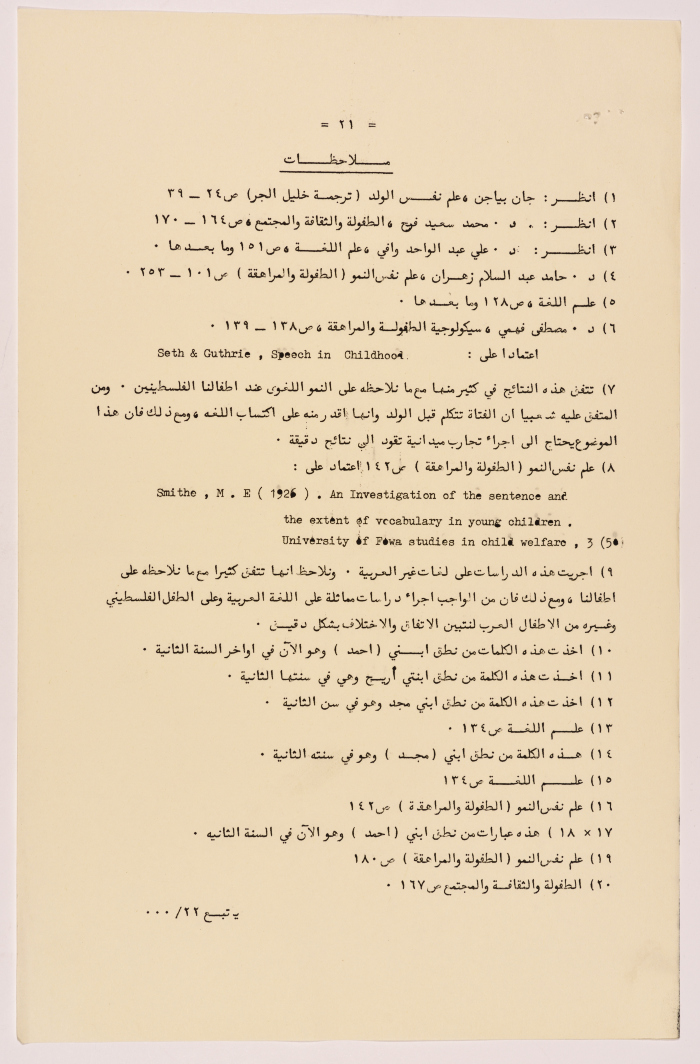 = ٢١ =
مـــلاحظـــات
١) انظـــر : جان بياجن ، علم نفـــس الولد ( ترجمة خليل الجر) ص٢٤ ــ ٣٩
٢) انظـــر : . د ٠ محمد سعيد فرح ، الطفولة والثقافة والمجتمع ، ص١٦٤ ــ ١٧٠
٣) انظـــر : د ٠ علي عبد الواحد وافي ، علم اللغـــة ، ص١٥١ وما بعـــدها ٠
٤) د ٠ حامد عبد السلام زهـــران ، علم نفس النمو ( الطفولة والمراهقة ) ص١٠١ ــ ٢٥٣ ٠
٥) علـــم اللغة ، ص١٢٨ وما بعـــدها ٠
٦) د ٠ مصطفى فهمي ، سيكولوجية الطفولـــة والمراهقة ، ص١٣٨ ــ ١٣٩ ٠
اعتمادا على : Seth & Guthrie , Speech in Childhood.
٧) تتفق هذه النتائج في كثير منهـــا مع ما نلاحظه على النمو اللغوى عند اطفالنا الفلسطينين ٠ ومن
المتفق عليه شـــعبيا ان الفتاة تتكلم قبل الولد وانهـــا اقدر منه على اكتساب اللغه ، ومع ذلك فان هـــذا
الموضوع يحتاج الى اجراء تجارب ميدانية تقود الى نتائج دقيقة ٠
٨) علم نفس النمو ( الطفولة والمراهقة ) ص١٤٢ اعتماد على :
Smithe , M . E ( 1926 ) . An Investigation of the sentence and
the extent of vocabulary in young children .
University of Fowa studies in child welfare , 3 (5
٩) اجريت هـــذه الدراسات على لغـــات غير العربية ٠ ونلاحظ انهـــا تتفق كثيرا مع ما نلاحظه على
اطفالنا ، ومع ذلك فان من الواجب اجراء دراسات مماثلة على اللغة العربية وعلى الطفل الفلسطيني
وغـــيره من الاطفال العرب لنتبين الاتفاق والاختلاف بشكل دقيـــق ٠
١٠) اخذت هـــذه الكلمات من نطق ابـــني ( احمد ) وهو الآن في اواخر السنة الثانية ٠
١١) اخـــذت هـــذه الكلمة من نطق ابنتي أريـــج وهي في سنتهـــا الثانية ٠
١٢) اخذت هـــذه الكلمة من نطق ابني مجد وهو في سن الثانية ٠
١٣) علـــم اللغـــة ص١٣٤ ٠
١٤) هـــذه الكلمة من نطق ابني ( مجـــد ) وهو في سنته الثانية ٠
١٥) علـــم اللغـــة ص١٣٤
١٦) علم نفس النمو ( الطفولة والمراهقة ) ص١٤٢
١٧ × ١٨ ) هذه عبارات من نطق ابني ( احمد ) وهو الآن في السنة الثانيه ٠
١٩) علم نفس النمو ( الطفولة والمراهقة ) ص١٨٠
٢٠) الطفولة والثقافـــة والمجتمع ص١٦٧ ٠
يتبـــع ٢٢/ ٠٠٠